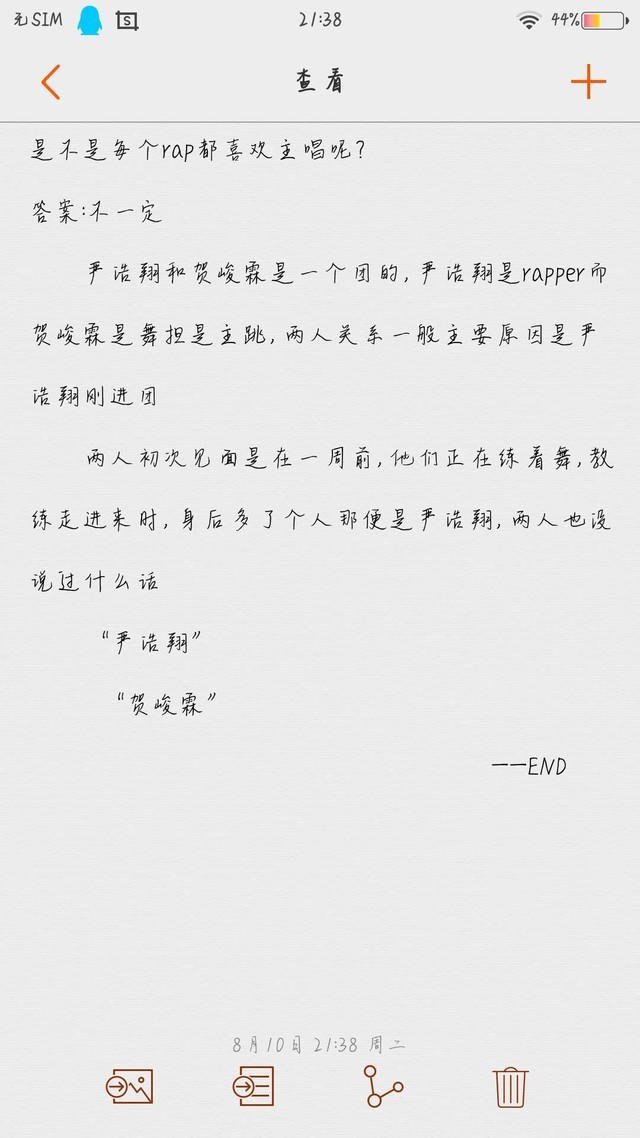 无SIM 21:38 44%
查看
是不是每个rap都喜欢主唱呢?
答案:不一定
严浩翔和贺峻霖是一个团的,严浩翔是rapper而
贺峻霖是舞担是主跳,两人关系一般主要原因是严
浩翔刚进团
两人初次见面是在一周前,他们正在练着舞,教
练走进来时,身后多了个人那便是严浩翔,两人也没
说过什么话
“严浩翔”
“贺峻霖”
——END
8月10日 21:38 周二